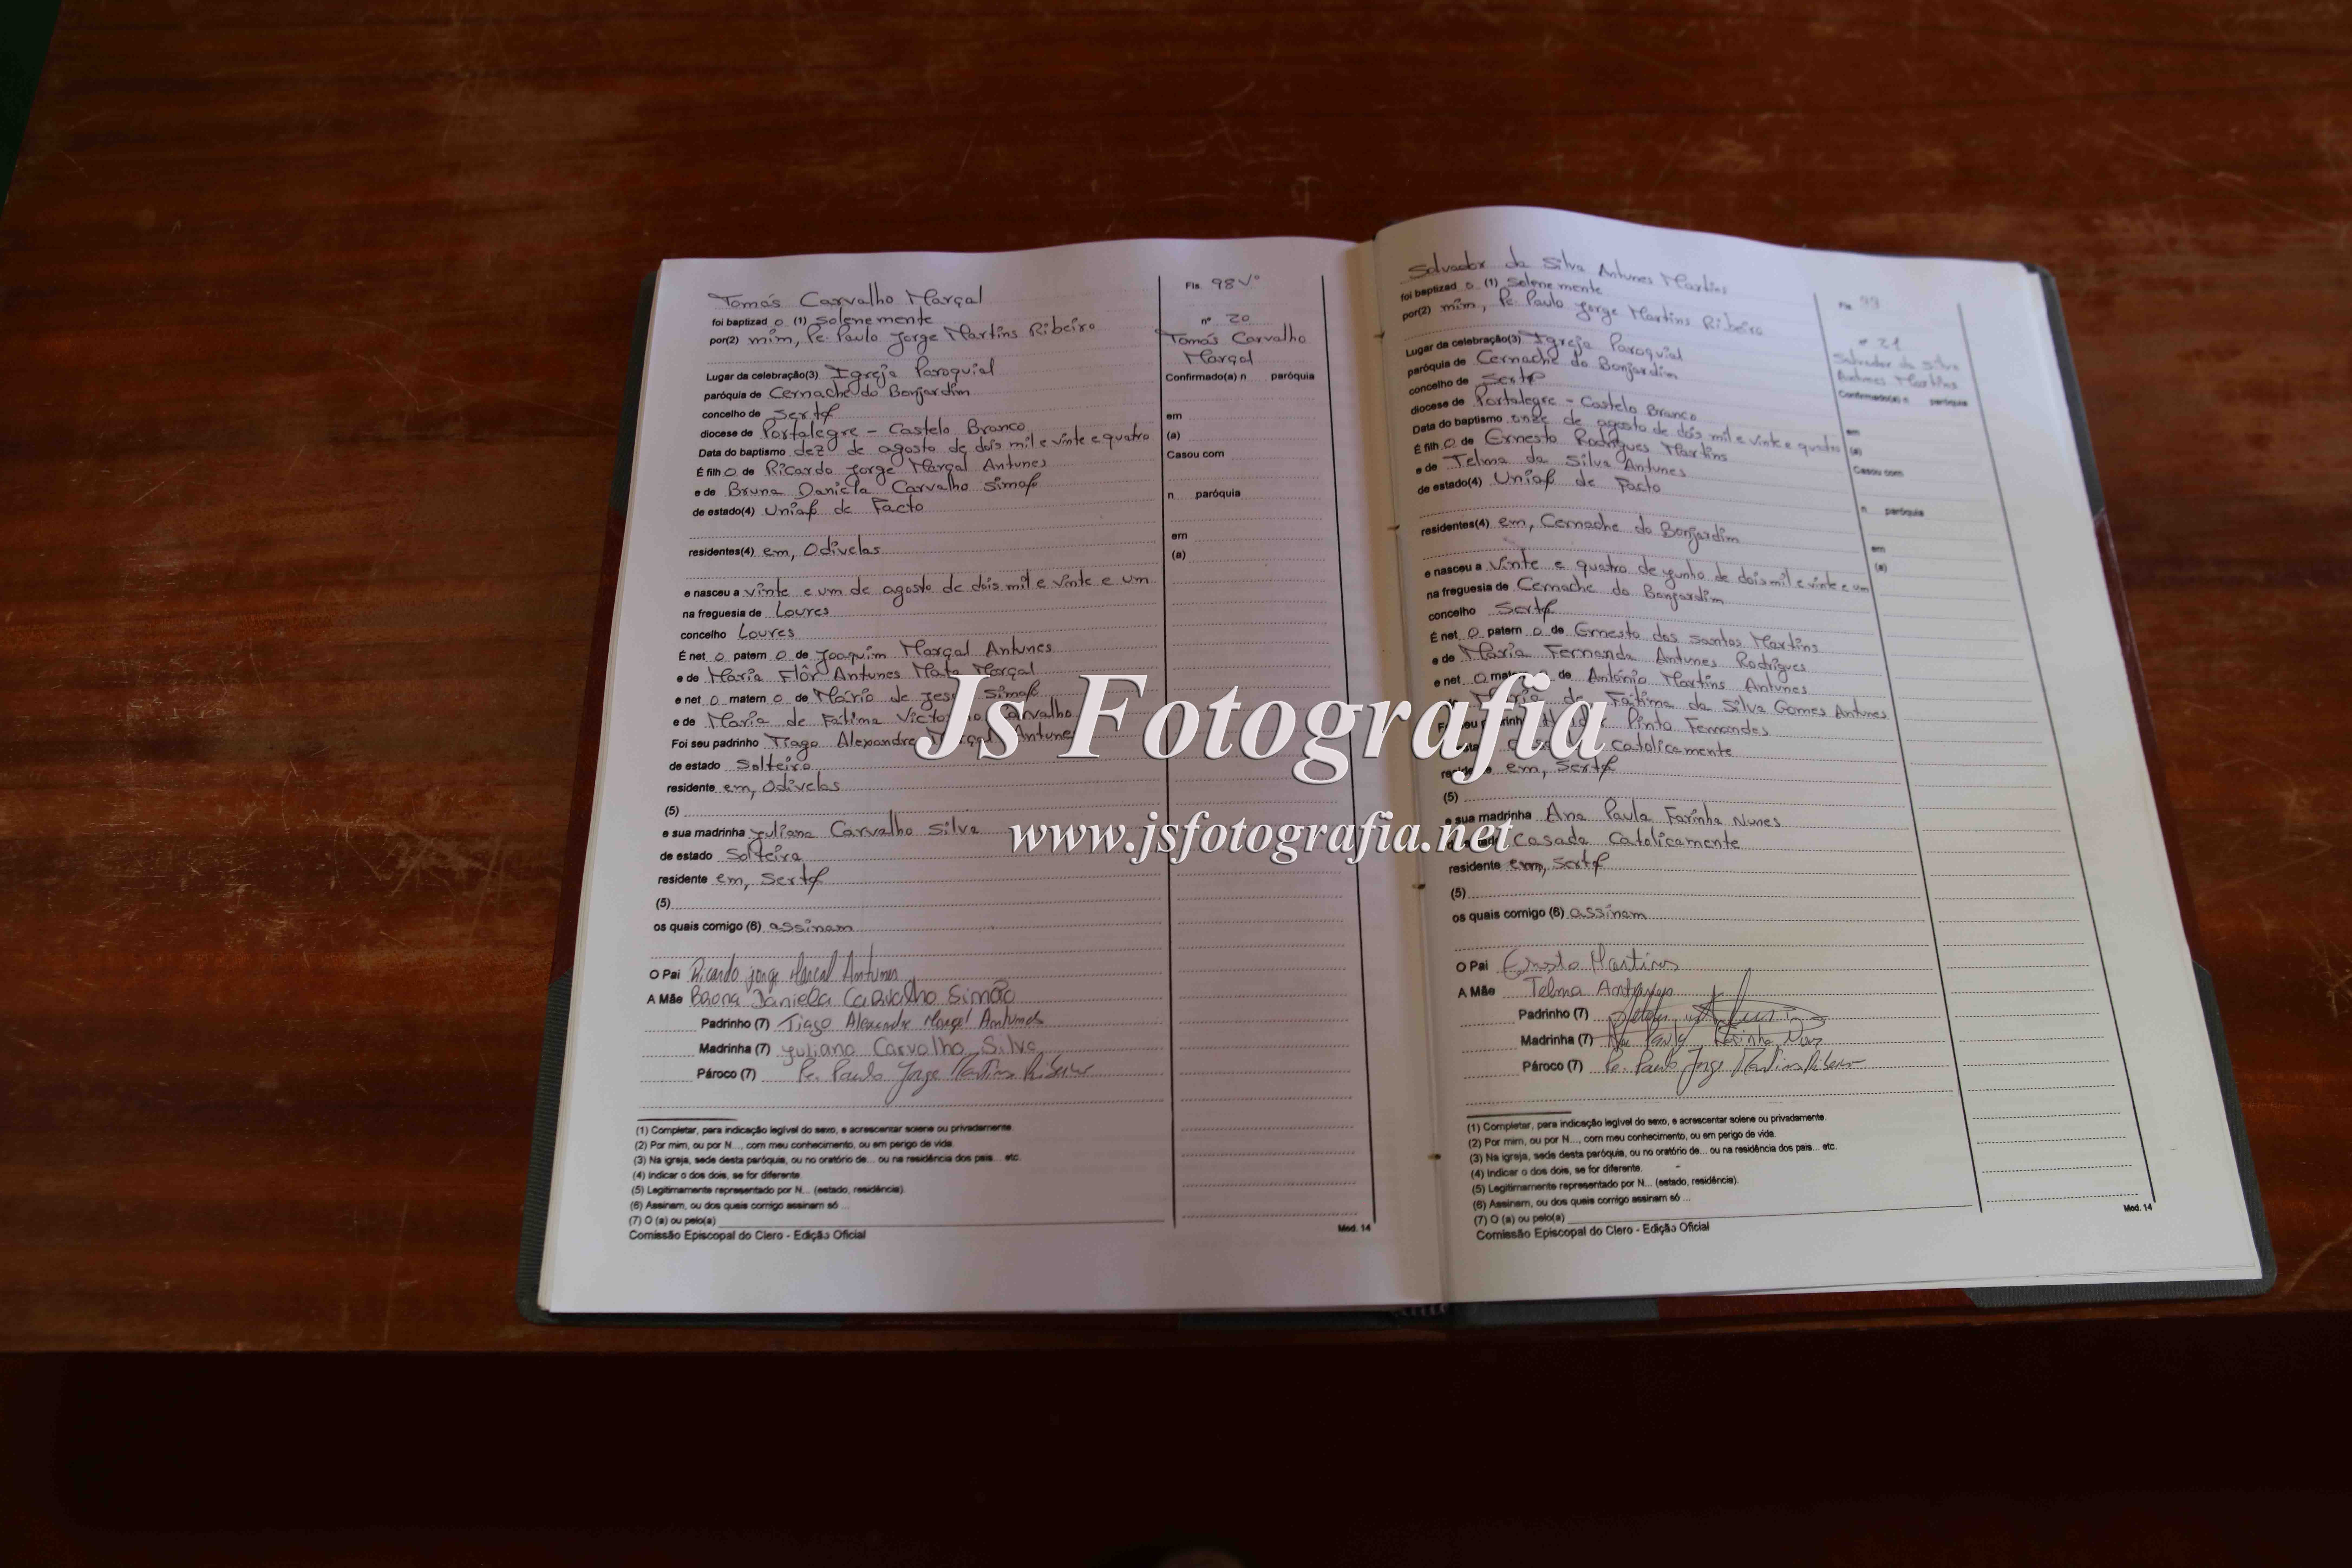 Tomás Carvalho Marçal
foi baptizad o (1) solenemente
por(2) mim, Pe. Paulo Jorge Martins Ribeiro
Lugar da celebração(3) Igreja Paroquial
paróquia de Cernache do Bonjardim
concelho de Sertã
diocese de Portalegre - Castelo Branco
Data do baptismo dez de agosto de dois mil e vinte e quatro
É filh o de Ricardo Jorge Marçal Antunes
e de Bruna Daniela Carvalho Simão
de estado(4) União de Facto
residentes(4) em, Odivelas
e nasceu a vinte e um de agosto de dois mil e vinte e um
na freguesia de Loures
concelho Loures
É net o patern o de Joaquim Marçal Antunes
e de Maria Flôr Antunes Mata Marçal
e net o matern o de Mário de Simão
e de Maria de Fátima Carvalho
Foi seu padrinho Tiago Alexandre Marçal Antunes
de estado Solteiro
residente em, Odivelas
(5)
e sua madrinha Juliana Carvalho Silva
de estado Solteira
residente em, Sertã
(5)
os quais comigo (6) assinam
O Pai Ricardo Jorge Marçal Antunes
A Mãe Bruna Daniela Carvalho Simão
Padrinho (7) Tiago Alexandre Marçal Antunes
Madrinha (7) Juliana Carvalho Silva
Pároco (7) Pe. Paulo Jorge Martins Ribeiro
(1) Completar, para indicação legível do sexo, e acrescentar solene ou privadamente.
(2) Por mim, ou por N..., com meu conhecimento, ou em perigo de vida.
(3) Na igreja, sede desta paróquia, ou no oratório de... ou na residência dos pais... etc.
(4) Indicar o dos dois, se for diferente.
(5) Legitimamente representado por N... (estado, residência).
(6) Assinam, ou dos quais comigo assinam só ...
(7) O (a) ou pelo(a)
Comissão Episcopal do Clero - Edição Oficial
Fls. 98 Vº
nº 20
Tomás Carvalho
Marçal
Confirmado(a) n paróquia
em
(a)
Casou com
n paróquia
em
(a)
Mod. 14
Salvador da Silva Antunes Martins
foi baptizad o (1) solenemente
por(2) mim, Pe. Paulo Jorge Martins Ribeiro
Lugar da celebração(3) Igreja Paroquial
paróquia de Cernache do Bonjardim
concelho de Sertã
diocese de Portalegre - Castelo Branco
Data do baptismo onze de agosto de dois mil e vinte e quatro
É filh o de Ernesto Rodrigues Martins
e de Telma da Silva Antunes
de estado(4) União de Facto
residentes(4) em, Cernache do Bonjardim
e nasceu a vinte e quatro de junho de dois mil e vinte e um
na freguesia de Cernache do Bonjardim
concelho Sertã
É net o patern o de Ernesto dos Santos Martins
e de Maria Fernanda Antunes Rodrigues
e net o de António Martins Antunes
Maria de Fátima da Silva Gomes Antunes
Pinto Fernandes
catolicamente
residente em, Sertã
(5)
e sua madrinha Ana Paula Farinha Nunes
Casada Catolicamente
residente em, Sertã
(5)
os quais comigo (6) assinam
O Pai Ernesto Martins
A Mãe Telma Antunes
Padrinho (7)
Madrinha (7) Ana Paula Farinha
Pároco (7) Pe. Paulo Jorge Martins Ribeiro
(1) Completar, para indicação legível do sexo, e acrescentar solene ou privadamente.
(2) Por mim, ou por N..., com meu conhecimento, ou em perigo de vida.
(3) Na igreja, sede desta paróquia, ou no oratório de... ou na residência dos pais... etc.
(4) Indicar o dos dois, se for diferente.
(5) Legitimamente representado por N... (estado, residência).
(6) Assinam, ou dos quais comigo assinam só ...
(7) O (a) ou pelo(a)
Comissão Episcopal do Clero - Edição Oficial
Fls. 99
nº 21
Salvador da Silva
Antunes Martins
Confirmado(a) n paróquia
em
(a)
Casou com
n paróquia
em
(a)
Mod. 14
Js Fotografia
www.jsfotografia.net